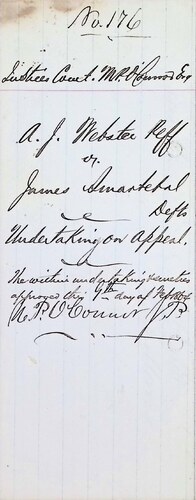 No. 176
Justices Court. M.P. O'Connor Esq
A. J. Webster Plff
vs.
James Smart et al
Defts
Undertaking on Appeal.
The within undertaking & sureties
approved this 9th day of Feb 1864
M. P. O'Connor J.P.